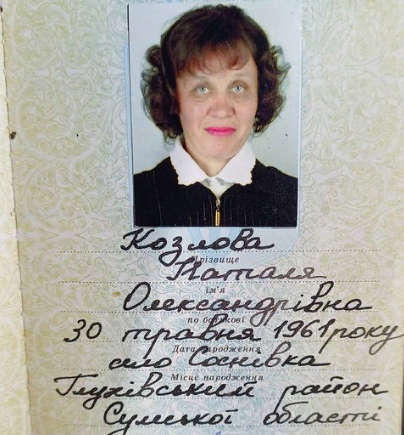 Козлова
Прізвище
Наталя
ім'я
Олександрівна
по батькові
30 травня 1961 року
Дата народження
село Соснівка
Місце народження
Глухівський район
Сумської області